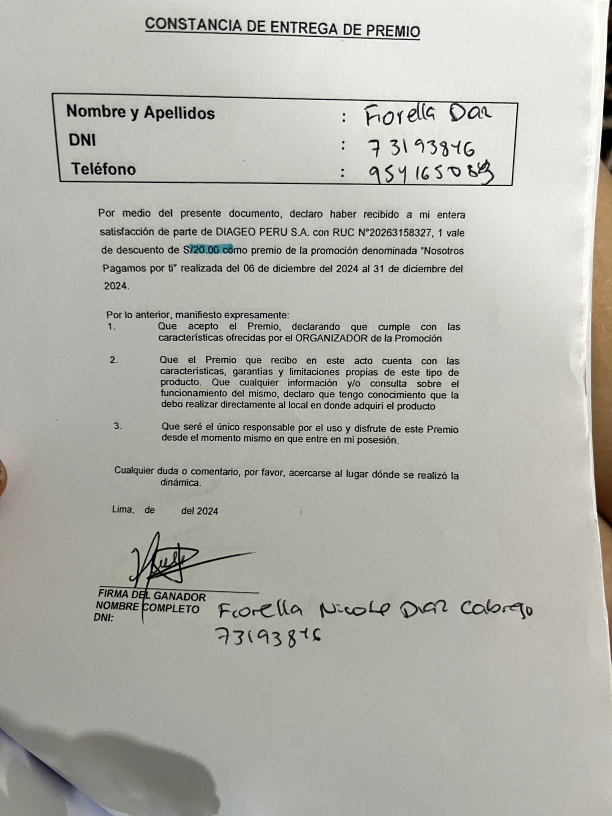 CONSTANCIA DE ENTREGA DE PREMIO
Nombre y Apellidos : Fiorella Diaz
DNI : 73193846
Teléfono :
Por medio del presente documento, declaro haber recibido a mi entera
satisfacción de parte de DIAGEO PERU S.A. con RUC N°20263158327, 1 vale
de descuento de S/20.00 como premio de la promoción denominada "Nosotros
Pagamos por ti" realizada del 06 de diciembre del 2024 al 31 de diciembre del
2024.
Por lo anterior, manifiesto expresamente:
1. Que acepto el Premio, declarando que cumple con las
características ofrecidas por el ORGANIZADOR de la Promoción
2. Que el Premio que recibo en este acto cuenta con las
características, garantías y limitaciones propias de este tipo de
producto. Que cualquier información y/o consulta sobre el
funcionamiento del mismo, declaro que tengo conocimiento que la
debo realizar directamente al local en donde adquirí el producto
3. Que seré el único responsable por el uso y disfrute de este Premio
desde el momento mismo en que entre en mi posesión.
Cualquier duda o comentario, por favor, acercarse al lugar dónde se realizó la
dinámica.
Lima, de del 2024
FIRMA DEL GANADOR
NOMBRE COMPLETO Fiorella Nicole Diaz Cabrejo
DNI: 73193846